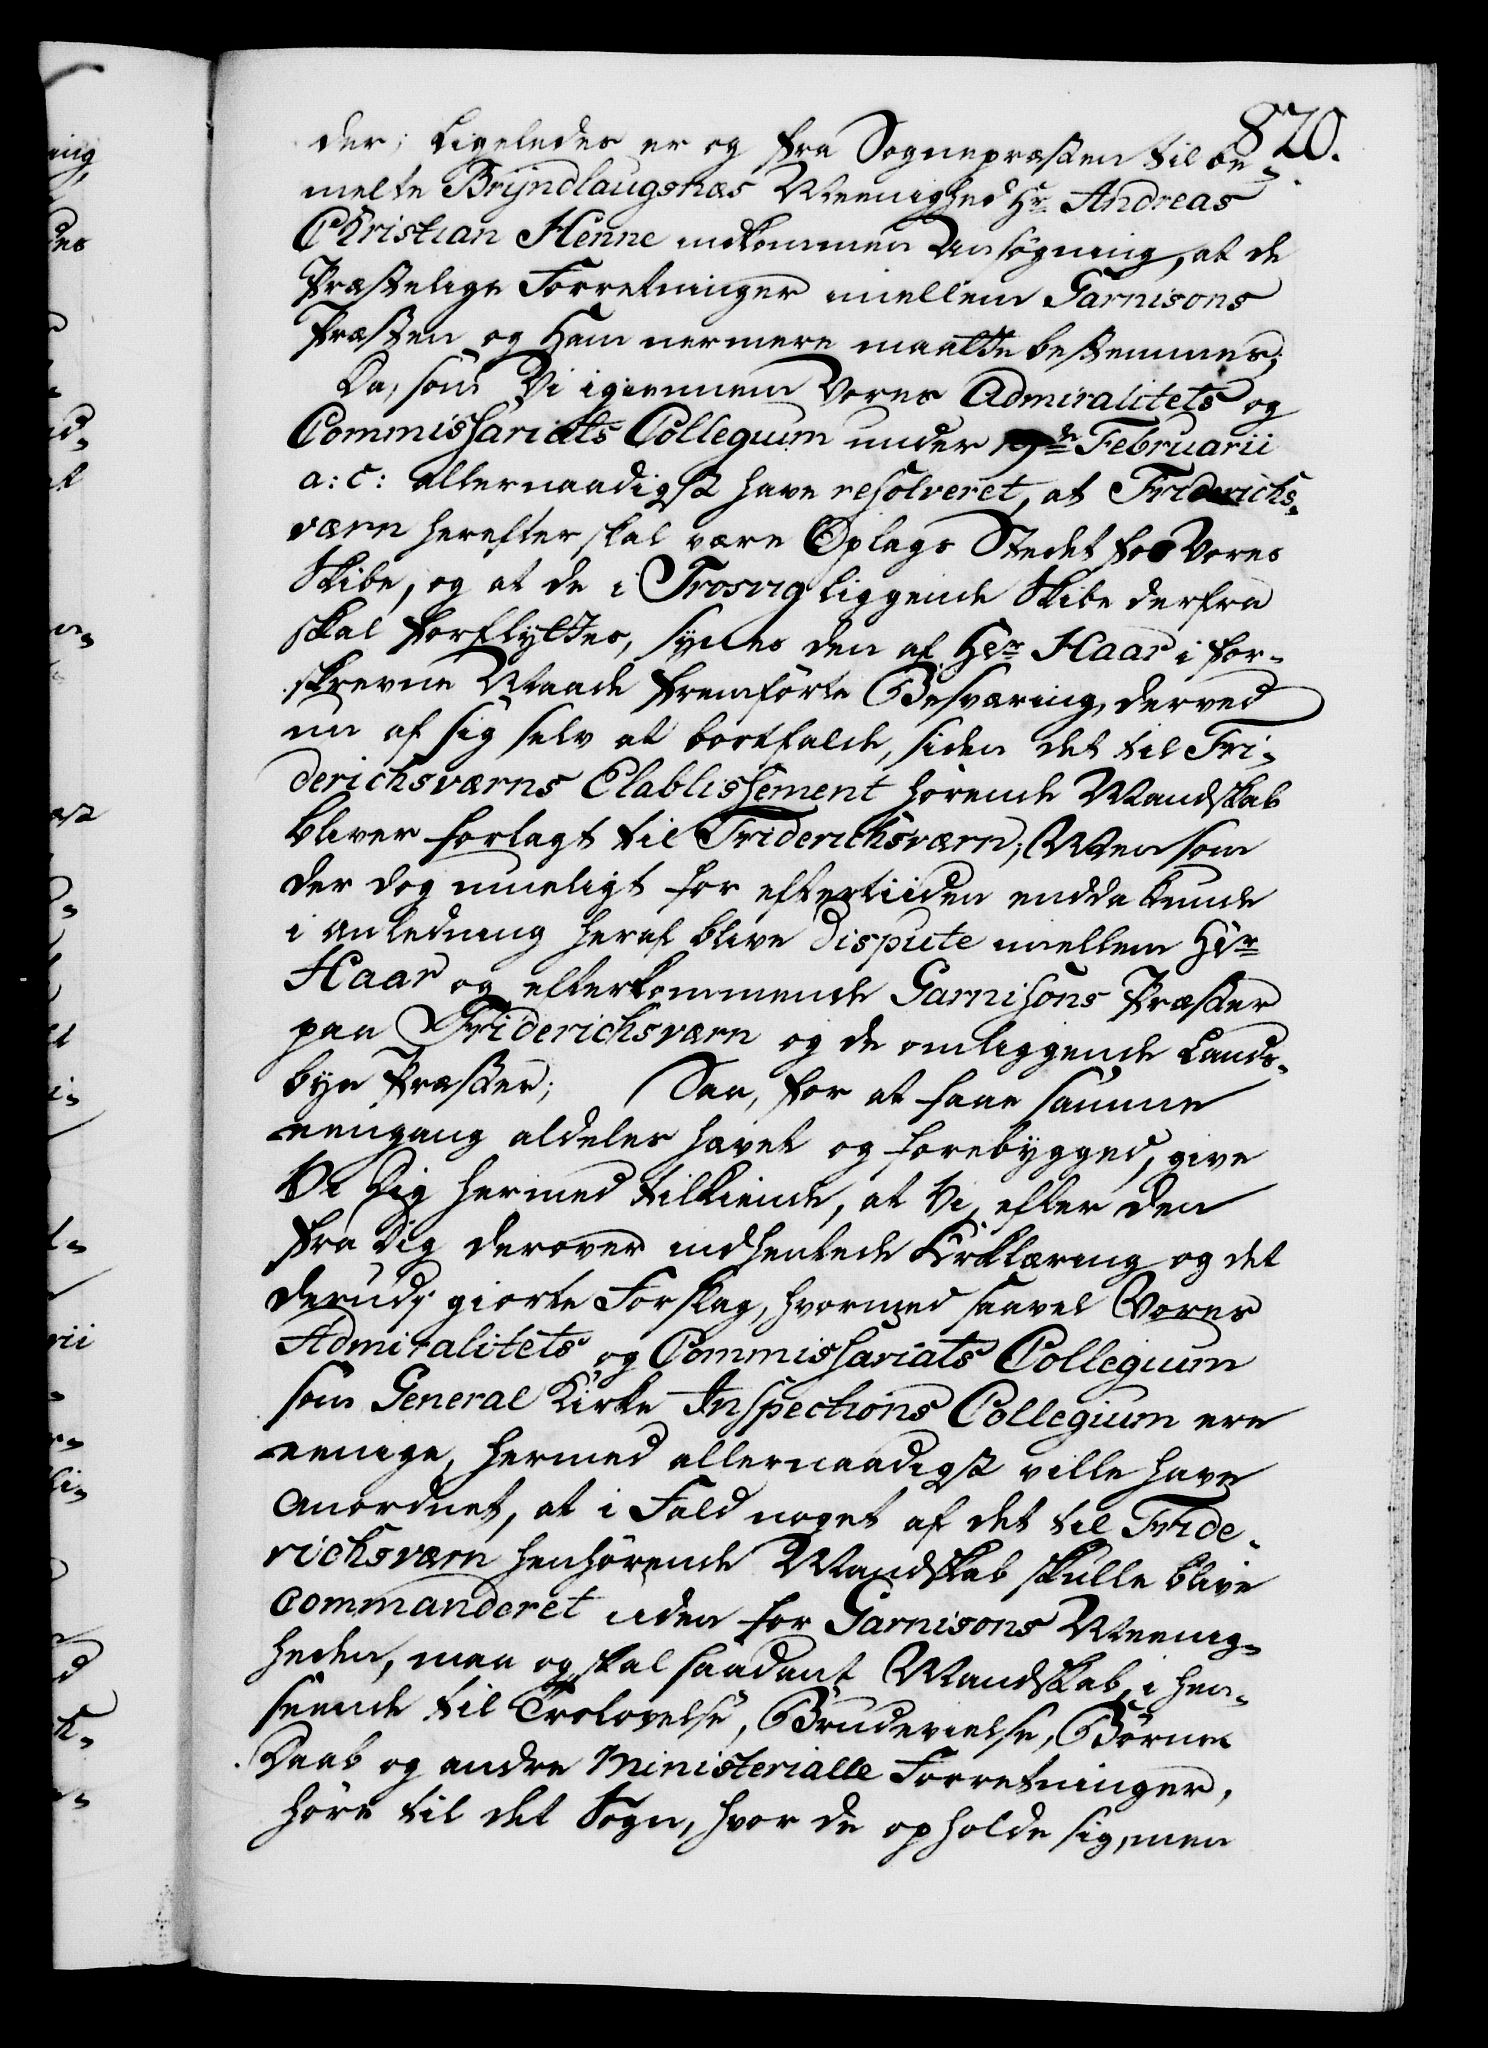 820.
der; Ligeledes er og fra Sognepræsten til be-
melte Brÿndlaugsnæs Meenighed Hr. Andreas
Christian Henne indkommen Ansøgning, at de
Præstelige Forretninger imellem Garnisons
Præsten og Ham nermere maatte bestemmes;
Da, som Vi igiennem Vores Admiralitets og
Commissariats Collegium under 19de Februarii
a: c: allernaadigst have resolveret, at Friderichs-
værn herefter skal være Oplags Stedet for Vores
Skibe, og at de i Trosvig liggende Skibe derfra
skal forflyttes, synes den af Hr. Haar i for-
skrevne Maade fremførte Besværing, derved
nu af sig selv at bortfalde, siden det til Fri-
derichsværns Etablissement hørende Mandskab
bliver forlagt til Friderichsværn; Men som
der dog mueligt for eftertiiden endda kunde
i Anledning heraf blive Dispute imellem Hr.
Haar og efterkommende Garnisons Præster
paa Friderichsværn og de omliggende Lands-
bye Præster; Saa, for at faae samme
eengang aldeles hævet og forebygged, give
Vi Dig hermed tilkiende, at Vi, efter den
fra Dig derover indhentede Erklæring og det
derudj giorte Forslag, hvormed saavel Vores
Admiralitets og Commissariats Collegium
som General Kirke Inspections Collegium ere
eenige, hermed allernaadigst ville have
anordnet, at i Fald noget af det til Fride-
richsværn henhørende Mandskab skulle blive
commanderet uden for Garnisons Meenig-
heden, maa og skal saadant Mandskab, i hen-
seende til Trolovelse, Brudevielse, Børne
Daab og andre Ministerialle Forretninger,
høre til det Sogn, hvor de opholde sig, men